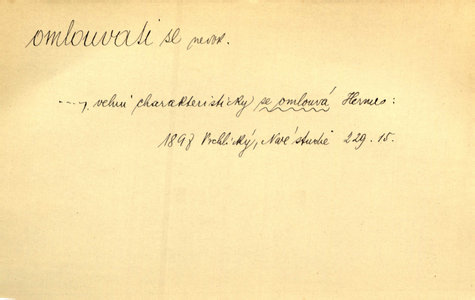 omlouvati se nedok.
...., velmi charakteristicky se omlouvá Hermes:
1897 Vrchlický, Nové studie 229.15.